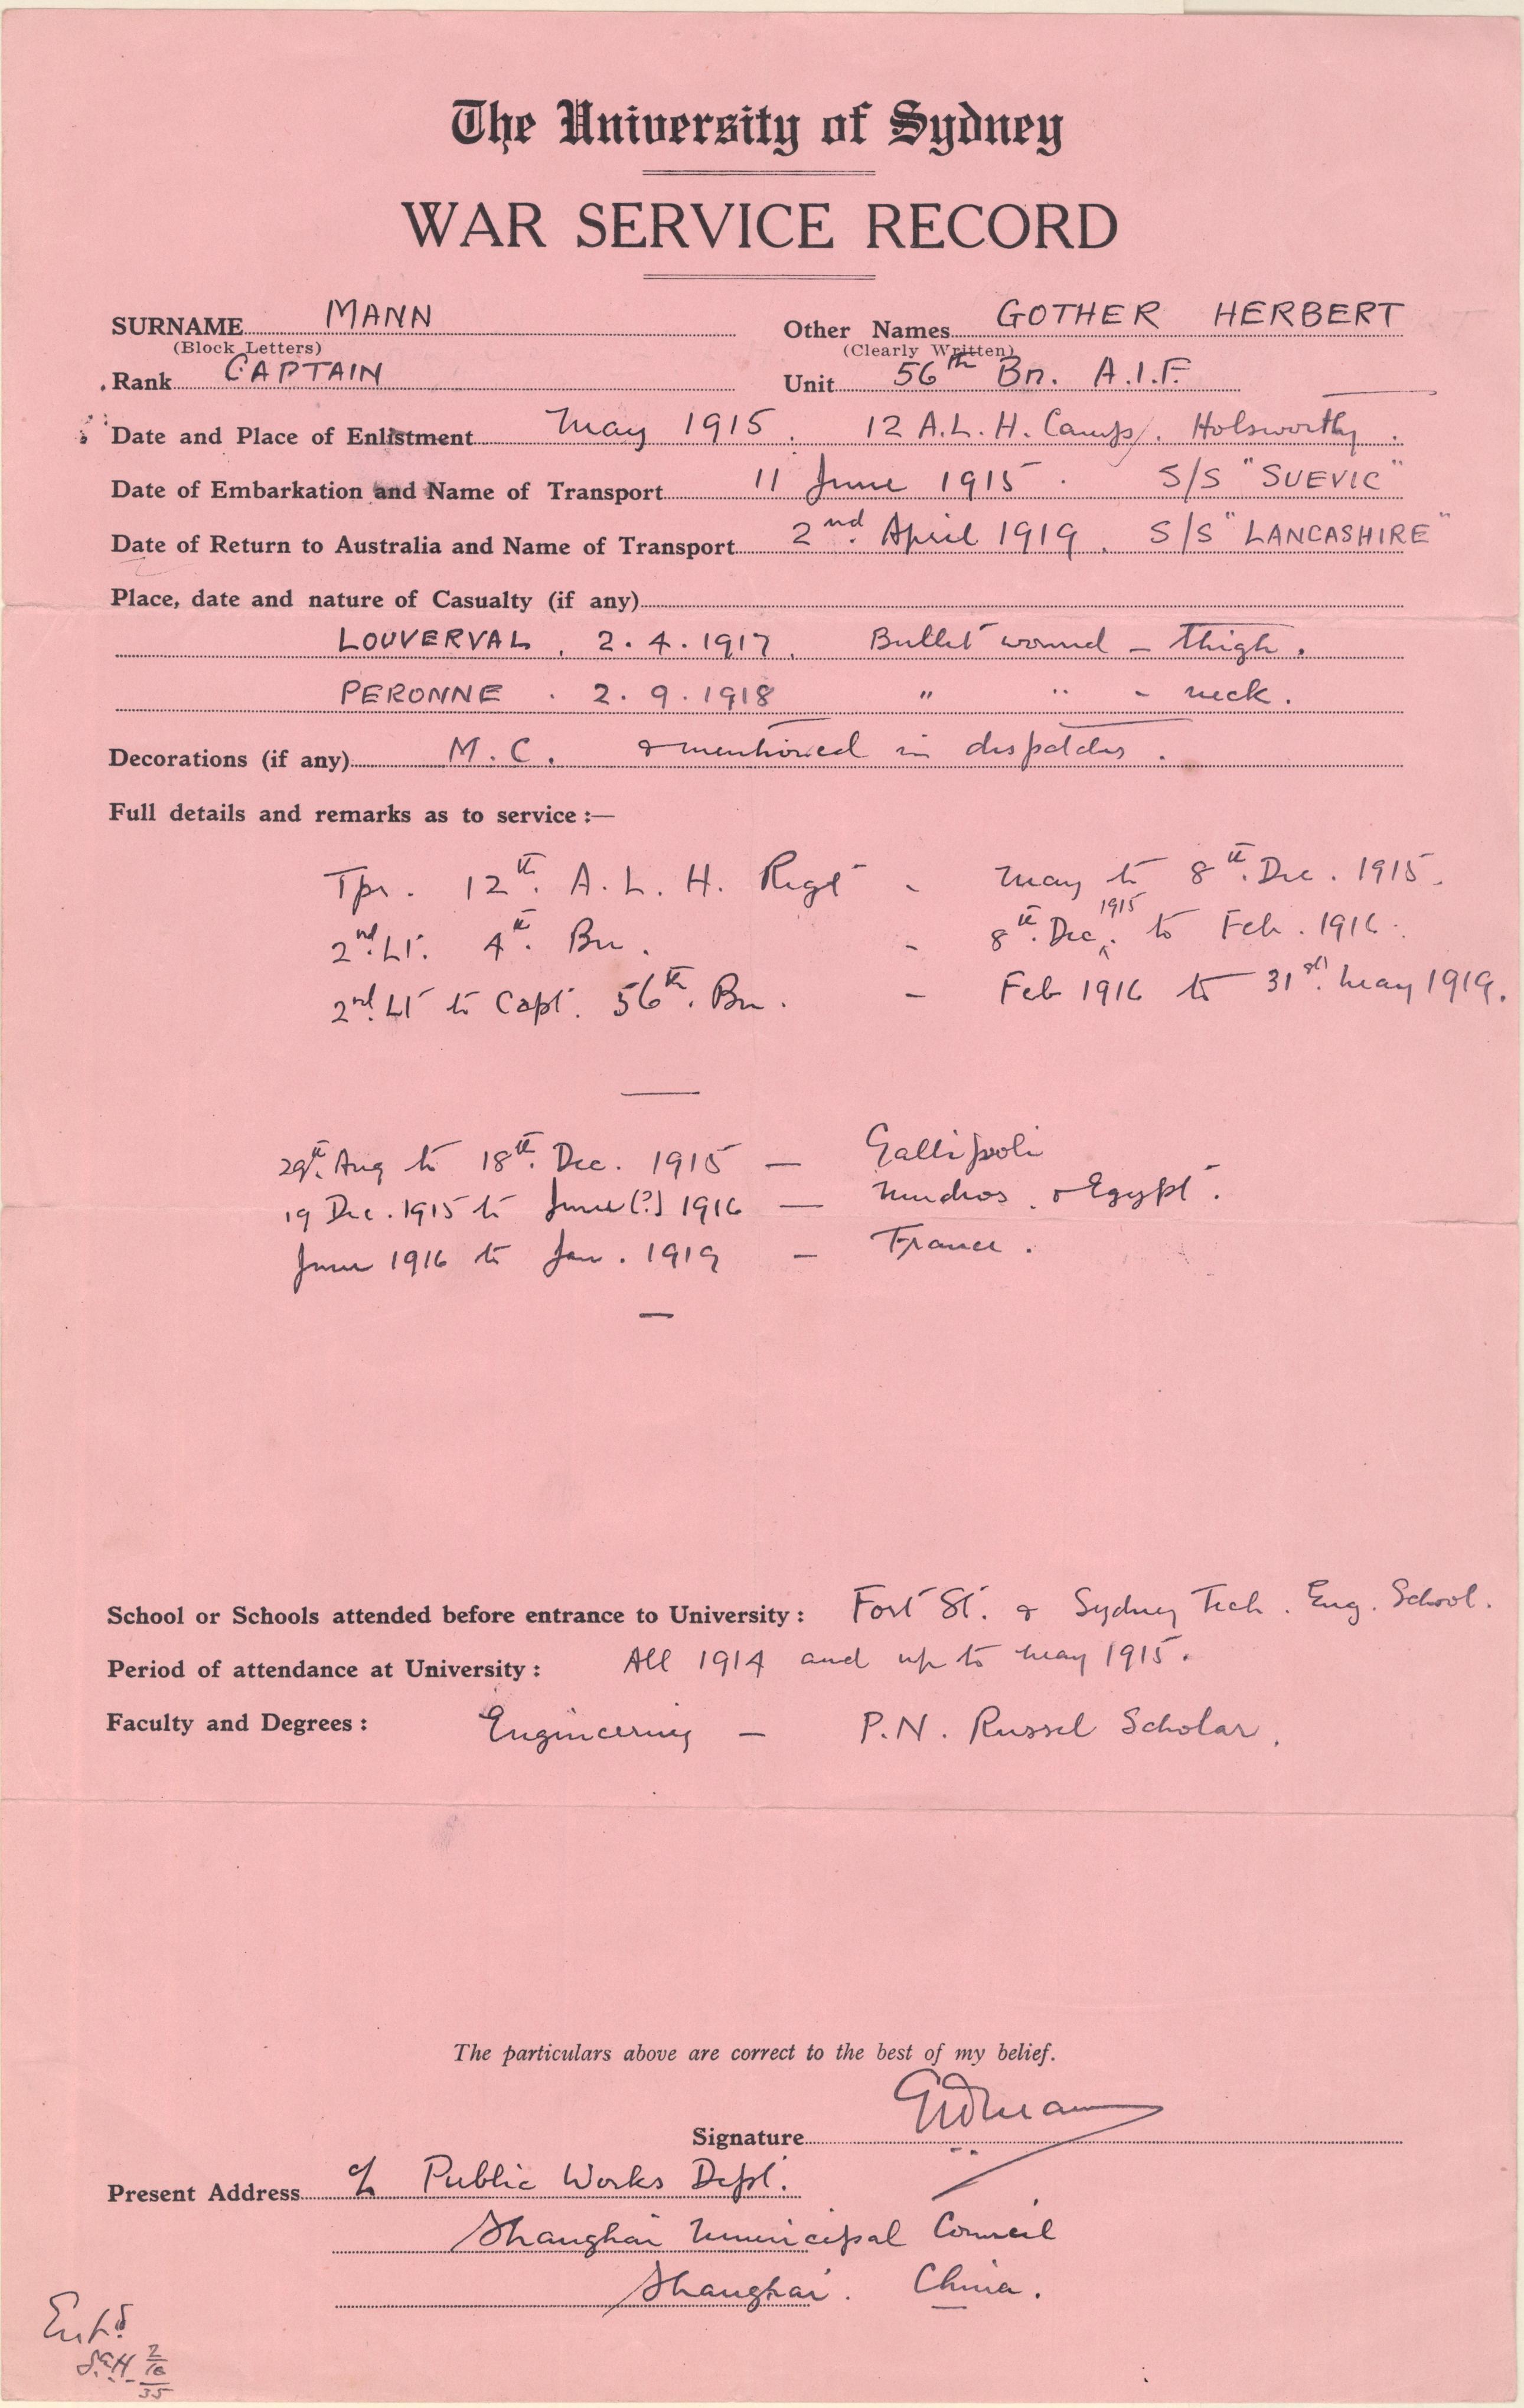 The University of Sydney
WAR SERVICE RECORD
SURNAME MANN Other Names GOTHER HERBERT
(Block Letters) (Clearly Written)
Rank CAPTAIN Unit 56th Bn. A.I.F.
Date and Place of Enlistment May 1915. 12 A.L.H. Camp, Holsworthy.
Date of Embarkation and Name of Transport 11 June 1915. S/S "SUEVIC"
Date of Return to Australia and Name of Transport 2nd. April 1919. S/S "LANCASHIRE"
Place, date and nature of Casualty (if any)
LOUVERVAL. 2.4.1917. Bullet wound - thigh.
PERONNE. 2.9.1918 " " - neck.
Decorations (if any) M.C. & mentioned in dispatches.
Full details and remarks as to service :—
Tpr. 12th. A.L.H. Regt - May to 8th. Dec. 1915.
2nd. Lt. 4th. Bn. - 8th. Dec. 1915 to Feb. 1916.
2nd. Lt to Capt. 56th. Bn. - Feb 1916 to 31st. May 1919.
29th. Aug to 18th. Dec. 1915 — Gallipoli
19 Dec. 1915 to June (?) 1916 — Mudros. & Egypt.
June 1916 to Jan. 1919 — France.
School or Schools attended before entrance to University : Fort St. & Sydney Tech. Eng. School.
Period of attendance at University : All 1914 and up to May 1915.
Faculty and Degrees : Engineering — P.N. Russel Scholar.
The particulars above are correct to the best of my belief.
Signature GHMann
Present Address c/o Public Works Dept.
Shanghai Municipal Council
Shanghai. China.
Entd
2/10/35